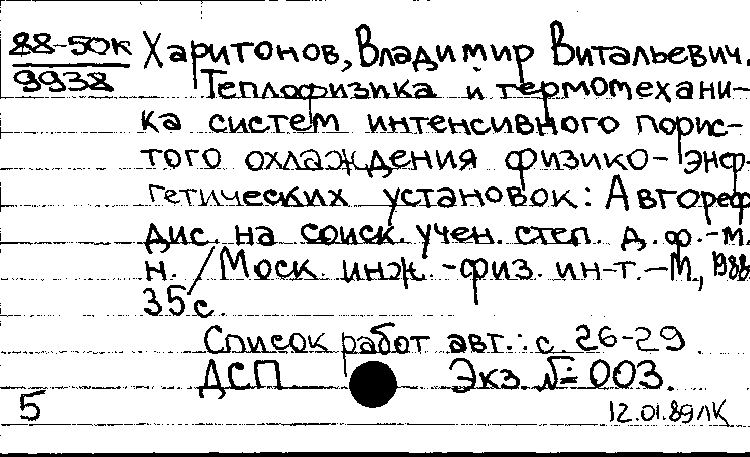 88-50к Харитонов, Владимир Витальевич.
9938 Теплофизика и термомехани-
ка систем интенсивного порис-
того охлаждения физико-энер-
гетических установок: Автореф
дис. на соиск. учен. степ. д.ф.-м.
н. / Моск. инж.-физ. ин-т.-М., 1988
35 с.
Список работ авт.: с. 26-29.
ДСП Экз. №003.
5 12.01.89лк